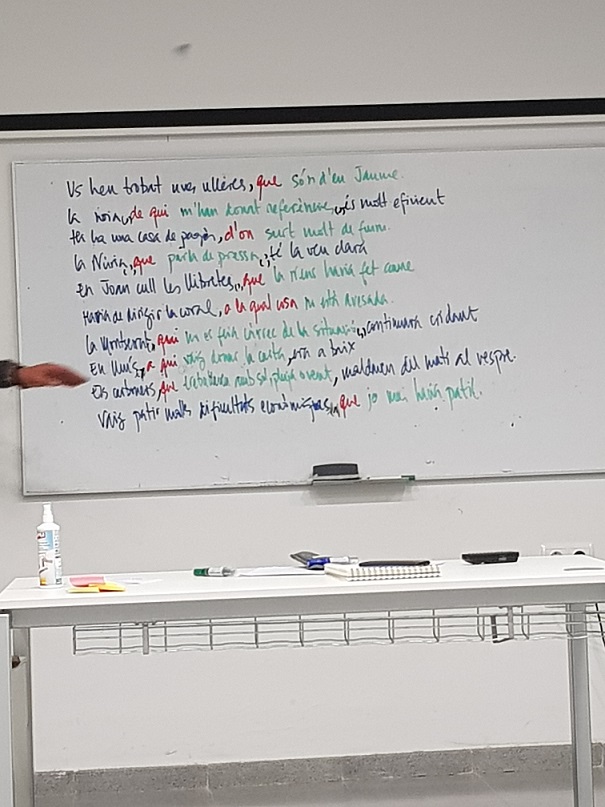 Us heu trobat unes ulleres, que són d'en Jaume.
la noia, de qui m'han donat referències, és molt eficient
hi ha una casa de pagès, d'on surt molt de fum.
la Núria, que parla de pressa, té la veu clara
En Joan cull les llibretes, que la nena havia fet caure
Havia de dirigir la coral, a la qual cosa no està avesada.
la Montserrat, qui no es feia càrrec de la situació, continuava cridant
En Lluís, a qui vaig donar la carta, era a baix
Els carboners, que treballaven amb sol, pluja o vent, maldaven del matí al vespre.
Vaig patir moltes dificultats econòmiques, que jo mai havia patit.